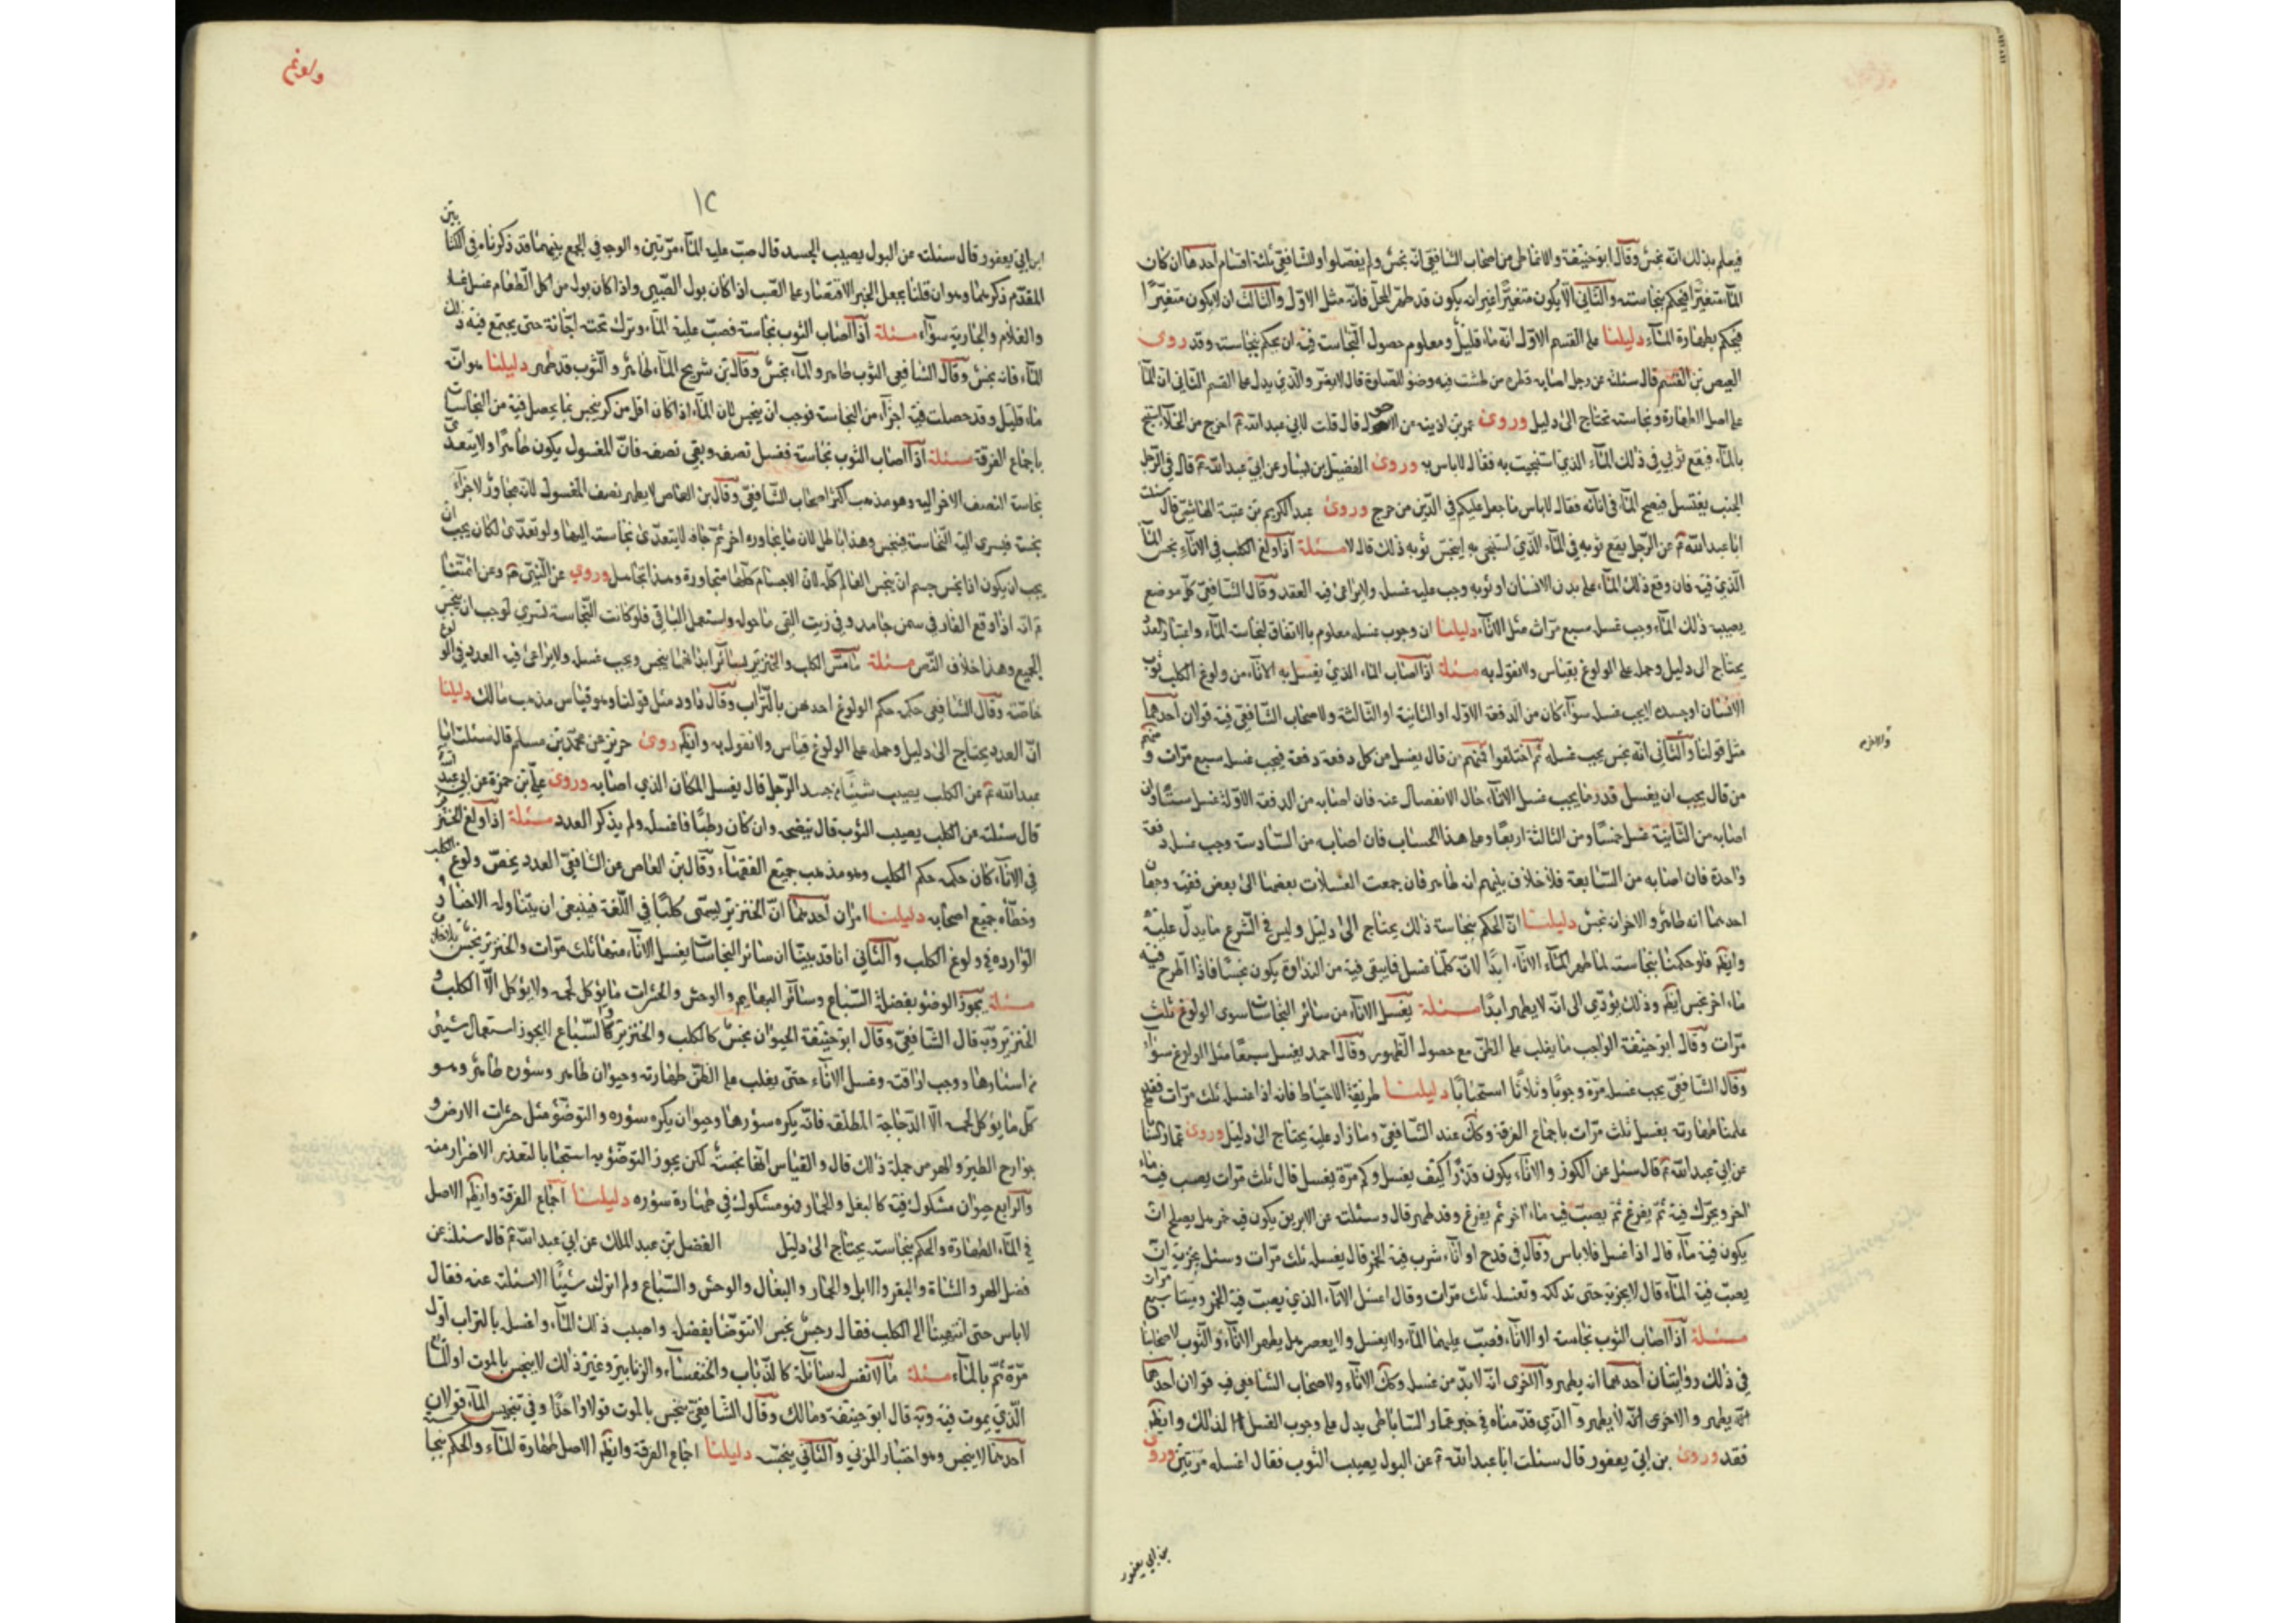 فيعلم بذلك انه نجس وقال ابو حنيفة والانماطي من اصحاب الشافعي انه نجس ولم يفصلوا وللشافعي ثلثة اقسام احدها ان كان
الماء متغيرا فيحكم بنجاسته والثاني الا يكون متغيرا غير انه يكون قد طهر المحل فانه مثل الاول والثالث ان لا يكون متغيرا
فيحكم بطهارة الماء دليلنا على القسم الاول انه ماء قليل ومعلوم حصول النجاسة فيه ان يحكم بنجاسته وقد روى
العيص بن القسم قال سئلته عن رجل اصابه قطرة من طشت فيه وضوء قال لا والذي يدل على القسم الثاني ان الماء
على اصل الطهارة ونجاسته تحتاج الى دليل وروى عمر بن اذينه عن الاحول قال قلت لابي عبد الله ع اخرج من الخلاء استنجي
بالماء فيقع ثوبي في ذلك الماء الذي استنجيت به فقال لا باس به وروى الفضيل بن يسار عن ابي عبد الله ع قال في الرجل
الجنب يغتسل فينضح الماء في انائه فقال لا باس ما جعل عليكم في الدين من حرج وروى عبد الكريم بن عتبة الهاشمي قال سئلت
ابا عبد الله ع عن الرجل يقع ثوبه في الماء الذي استنجى به اينجس ثوبه ذلك قال لا مسئلة اذا ولغ الكلب في الاناء نجس الماء
الذي فيه فان وقع ذلك الماء على بدن الانسان او ثوبه وجب عليه غسله ولا يراعى فيه العدد وقال الشافعي كل موضع
يصيب ذلك الماء وجب غسله سبع مرات مثل الاناء دليلنا ان وجوب غسله معلوم بالاتفاق لنجاسة الماء واعتبار العدد
يحتاج الى دليل وحمله على الولوغ بقياس ولا نقول به مسئلة اذا اصاب الماء الذي يغسل به الاناء من ولوغ الكلب ثوب
الانسان او جسده لا يجب غسله سواء كان من الدفعة الاولة او الثانية او الثالثة ولاصحاب الشافعي فيه قولان احدهما
مثل قولنا والثاني انه نجس يجب غسله ثم اختلفوا فمنهم من قال يغسل من كل دفعة دفعة فيجب غسله سبع مرات ومنهم
من قال يجب ان يغسل قدر ما يجب غسل الاناء حال الانفصال عنه فان اصابه من الدفعة الاولة غسل ستا وان
اصابه من الثانية غسل خمسا ومن الثالثة اربعا وعلى هذا الحساب فان اصابه من السادسة وجب غسله دفعة
واحدة فان اصابه من السابعة فلا خلاف بينهم انه طاهر فان جمعت الغسلات بعضها الى بعض ففيه وجهان
احدهما انه طاهر والاخر انه نجس دليلنا ان الحكم بنجاسة ذلك يحتاج الى دليل وليس في الشرع ما يدل عليه
وايضا فلو حكمنا بنجاسته لما طهر الاناء ابدا لانه كلما غسل فما يبقى فيه من النداوة يكون نجسا فاذا طرح فيه
ماء اخر نجس ايضا وذلك يؤدي الى انه لا يطهر ابدا مسئلة يغسل الاناء من سائر النجاسات سوى الولوغ ثلث
مرات وقال ابو حنيفة الواجب ما يغلب على الظن مع حصول الطهور وقال احمد يغسل سبعا مثل الولوغ سواء
وقال الشافعي يجب غسله مرة وجوبا وثلاثا استحبابا دليلنا طريقة الاحتياط فانه اذا غسل ثلث مرات فقد
علمنا طهارته بغسل ثلث مرات باجماع الفرقة وكذا عند الشافعي وما زاد عليه يحتاج الى دليل وروى عمار
عن ابي عبد الله ع قال سئل عن الكوز والاناء يكون قذرا كيف يغسل وكم مرة يغسل قال ثلث مرات يصب فيه ماء
اخر ويحرك فيه ثم يفرغ ثم يصب فيه ماء اخر ثم يفرغ وقد طهر قال وسئلته عن الابريق يكون فيه خمر هل يصلح ان
يكون فيه ماء قال اذا غسل فلا باس وقال في قدح او اناء شرب فيه الخمر قال يغسل ثلث مرات وسئل يجزيه ان
يصب فيه الماء قال لا يجزيه حتى تدلكه وتغسله ثلث مرات وقال اغسل الاناء الذي يصب فيه الخمر سبع مرات
مسئلة اذا اصاب الثوب نجاسة او الاناء فصب عليهما الماء ولا يغسل ولا يعصر هل يطهر الاناء والثوب لاصحابنا
في ذلك روايتان احدهما انه يطهر والاخرى انه لا بد من غسله وكذا الاناء ولاصحاب الشافعي فيه قولان احدهما
انه يطهر والاخرى انه لا يطهر والذي قدمناه في خبر عمار الساباطي يدل على وجوب الغسل لذلك وايضا
فقد وروى بن ابي يعفور قال سئلت ابا عبد الله ع عن البول يصيب الثوب فقال اغسله مرتين وروى
بن ابي يعفور
ولوغ
١٢
ابن ابي يعفور قال سئلته عن البول يصيب الجسد قال صب عليه الماء مرتين والوجه في الجمع بينهما قد ذكرناه في الكتابين
المقدم ذكرهما وهو ان قلنا يجعل الخبر الاقتصار على الصب اذا كان بول الصبي واذا كان بول من اكل الطعام غسل
والغلام والجارية سواء مسئلة اذا اصاب الثوب نجاسة فصب عليه الماء وترك تحته اجانة حتى يجتمع فيه ذلك
الماء فانه نجس وقال الشافعي الثوب طاهر والماء نجس وقال بن شريح الماء طاهر والثوب قد طهر دليلنا هو انه
ماء قليل وقد حصلت فيه اجزاء من النجاسة فوجب ان ينجس لان الماء اذا كان اقل من كر ينجس بما يحصل فيه من النجاسات
باجماع الفرقة مسئلة اذا اصاب الثوب نجاسة فغسل نصفه وبقي نصف فان المغسول يكون طاهرا ولا يتعدى
نجاسة النصف الاخر اليه وهو مذهب اكثر اصحاب الشافعي وقال بن العاص لا يطهر نصف المغسول لانه مجاور لاجزاء
نجسة فيسرى اليه النجاسة فينجس وهذا باطل لان ما يجاوره اجزاء جافة لا يتعدى نجاسته اليها ولو تعدى لكان يجب ان
يجب ان يكون اذا نجس جسم ان ينجس العالم كله لان الاجسام كلها متجاورة وهذا تجاهل وروى عن النبي ع وعن ائمتنا
ع انه اذا وقع الفار في سمن جامد وفي زيت القى ما حوله واستعمل الباقي فلو كانت النجاسة تسري لوجب ان ينجس
الجميع وهذا خلاف النص مسئلة ما مس الكلب والخنزير بسائر ابدانهما ينجس ويجب غسله ولا يراعى فيه العدد في الولوغ
خاصة وقال الشافعي حكمه حكم الولوغ احدهن بالتراب وقال داود مثل قولنا وهو قياس مذهب مالك دليلنا
ان العدد يحتاج الى دليل وحمله على الولوغ قياس ولا نقول به وايضا روى حريز عن محمد بن مسلم قال سئلت ابا
عبد الله ع عن الكلب يصيب شيئا من جسد الرجل قال يغسل المكان الذي اصابه وروى علي بن حمزة عن ابي عبد الله
قال سئلته عن الكلب يصيب الثوب قال ينضحه وان كان رطبا فاغسله ولم يذكر العدد مسئلة اذا ولغ الخنزير
في الاناء كان حكمه حكم الكلب وهو مذهب جميع الفقهاء وقال بن العاص عن الشافعي العدد يخص ولوغ الكلب
وخطاه جميع اصحابه دليلنا امران احدهما ان الخنزير يسمى كلبا في اللغة فينبغي ان يتناوله الاخبار
الواردة في ولوغ الكلب والثاني انا قد بينا ان سائر النجاسات يغسل الاناء منها ثلث مرات والخنزير نجس بلا خلاف
مسئلة يجوز الوضوء بفضل السباع وسائر البهائم والوحش والحشرات ما يؤكل لحمه ولا يؤكل الا الكلب و
الخنزير وبه قال الشافعي وقال ابو حنيفة الحيوان نجس كالكلب والخنزير والسباع لا يجوز استعمال شيء
من اسئارها ووجب اراقته وغسل الاناء حتى يغلب على الظن طهارته وحيوان طاهر وسؤره طاهر وهو
كل ما يؤكل لحمه الا الدجاجة المطلقة فانه يكره سؤرها وحيوان يكره سؤره والتوضؤ مثل حشرات الارض و
جوارح الطير والهر من جملة ذلك قال والقياس انها نجسة لكن يجوز التوضؤ به استحبابا لتعذر الاحتراز منه
والرابع حيوان مشكوك فيه كالبغل والحمار فهو مشكوك في طهارة سؤره دليلنا اجماع الفرقة وايضا الاصل
في الماء الطهارة والحكم بنجاسته يحتاج الى دليل الفضل بن عبد الملك عن ابي عبد الله ع قال سئلته عن
فضل الهر والشاة والبقر والابل والحمار والبغال والوحش والسباع ولم اترك شيئا الا سئلته عنه فقال
لا باس حتى انتهينا الى الكلب فقال رجس نجس لا تتوضأ بفضله واصبب ذلك الماء واغسله بالتراب اول
مرة ثم بالماء مسئلة ما لا نفس له سائلة كالذباب والخنفساء والزنابير وغير ذلك لا ينجس بالموت
الذي يموت فيه وبه قال ابو حنيفة ومالك وقال الشافعي ينجس بالموت قولا واحدا وفي تنجيس الماء قولان
احدهما لا ينجس وهو اختيار المزني والثاني ينجسه دليلنا اجماع الفرقة وايضا الاصل طهارة الماء والحكم بنجا